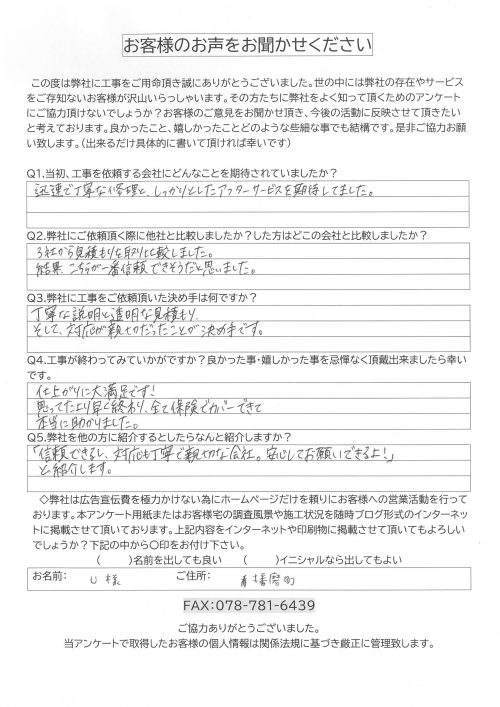 お客様のお声をお聞かせください
この度は弊社に工事をご用命頂き誠にありがとうございました。世の中には弊社の存在やサービス
をご存知ないお客様が沢山いらっしゃいます。その方たちに弊社をよく知って頂くためのアンケート
にご協力頂けないでしょうか？お客様のご意見をお聞かせ頂き、今後の活動に反映させて頂きたい
と考えております。良かったこと、嬉しかったことどのような些細な事でも結構です。是非ご協力お願
い致します。（出来るだけ具体的に書いて頂ければ幸いです）
Q1.当初、工事を依頼する会社にどんなことを期待されていましたか？
迅速で丁寧な修理と、しっかりとしたアフターサービスを期待してました。
Q2.弊社にご依頼頂く際に他社と比較しましたか？した方はどこの会社と比較しましたか？
3社から見積もりを取り比較しました。
結果、こちらが一番信頼できそうだと思いました。
Q3.弊社に工事をご依頼頂いた決め手は何ですか？
丁寧な説明と透明な見積もり、
そして、対応が親切だったことが決め手です。
Q4.工事が終わってみていかがですか？良かった事・嬉しかった事を忌憚なく頂戴出来ましたら幸い
です。
仕上がりに大満足です！
思ってたより早く終わり、全て保険でカバーできて
本当に助かりました。
Q5.弊社を他の方に紹介するとしたらなんと紹介しますか？
「信頼できるし、対応も丁寧で親切な会社。安心してお願いできるよ！」
と紹介します。
◇弊社は広告宣伝費を極力かけない為にホームページだけを頼りにお客様への営業活動を行って
おります。本アンケート用紙またはお客様宅の調査風景や施工状況を随時ブログ形式のインターネッ
トに掲載させて頂いております。上記内容をインターネットや印刷物に掲載させて頂いてもよろしい
でしょうか？下記の中から〇印をお付け下さい。
（　　）名前を出しても良い　（　　）イニシャルなら出してもよい
お名前：　U 様　ご住所：　播磨町
FAX：078-781-6439
ご協力ありがとうございました。
当アンケートで取得したお客様の個人情報は関係法規に基づき厳正に管理致します。